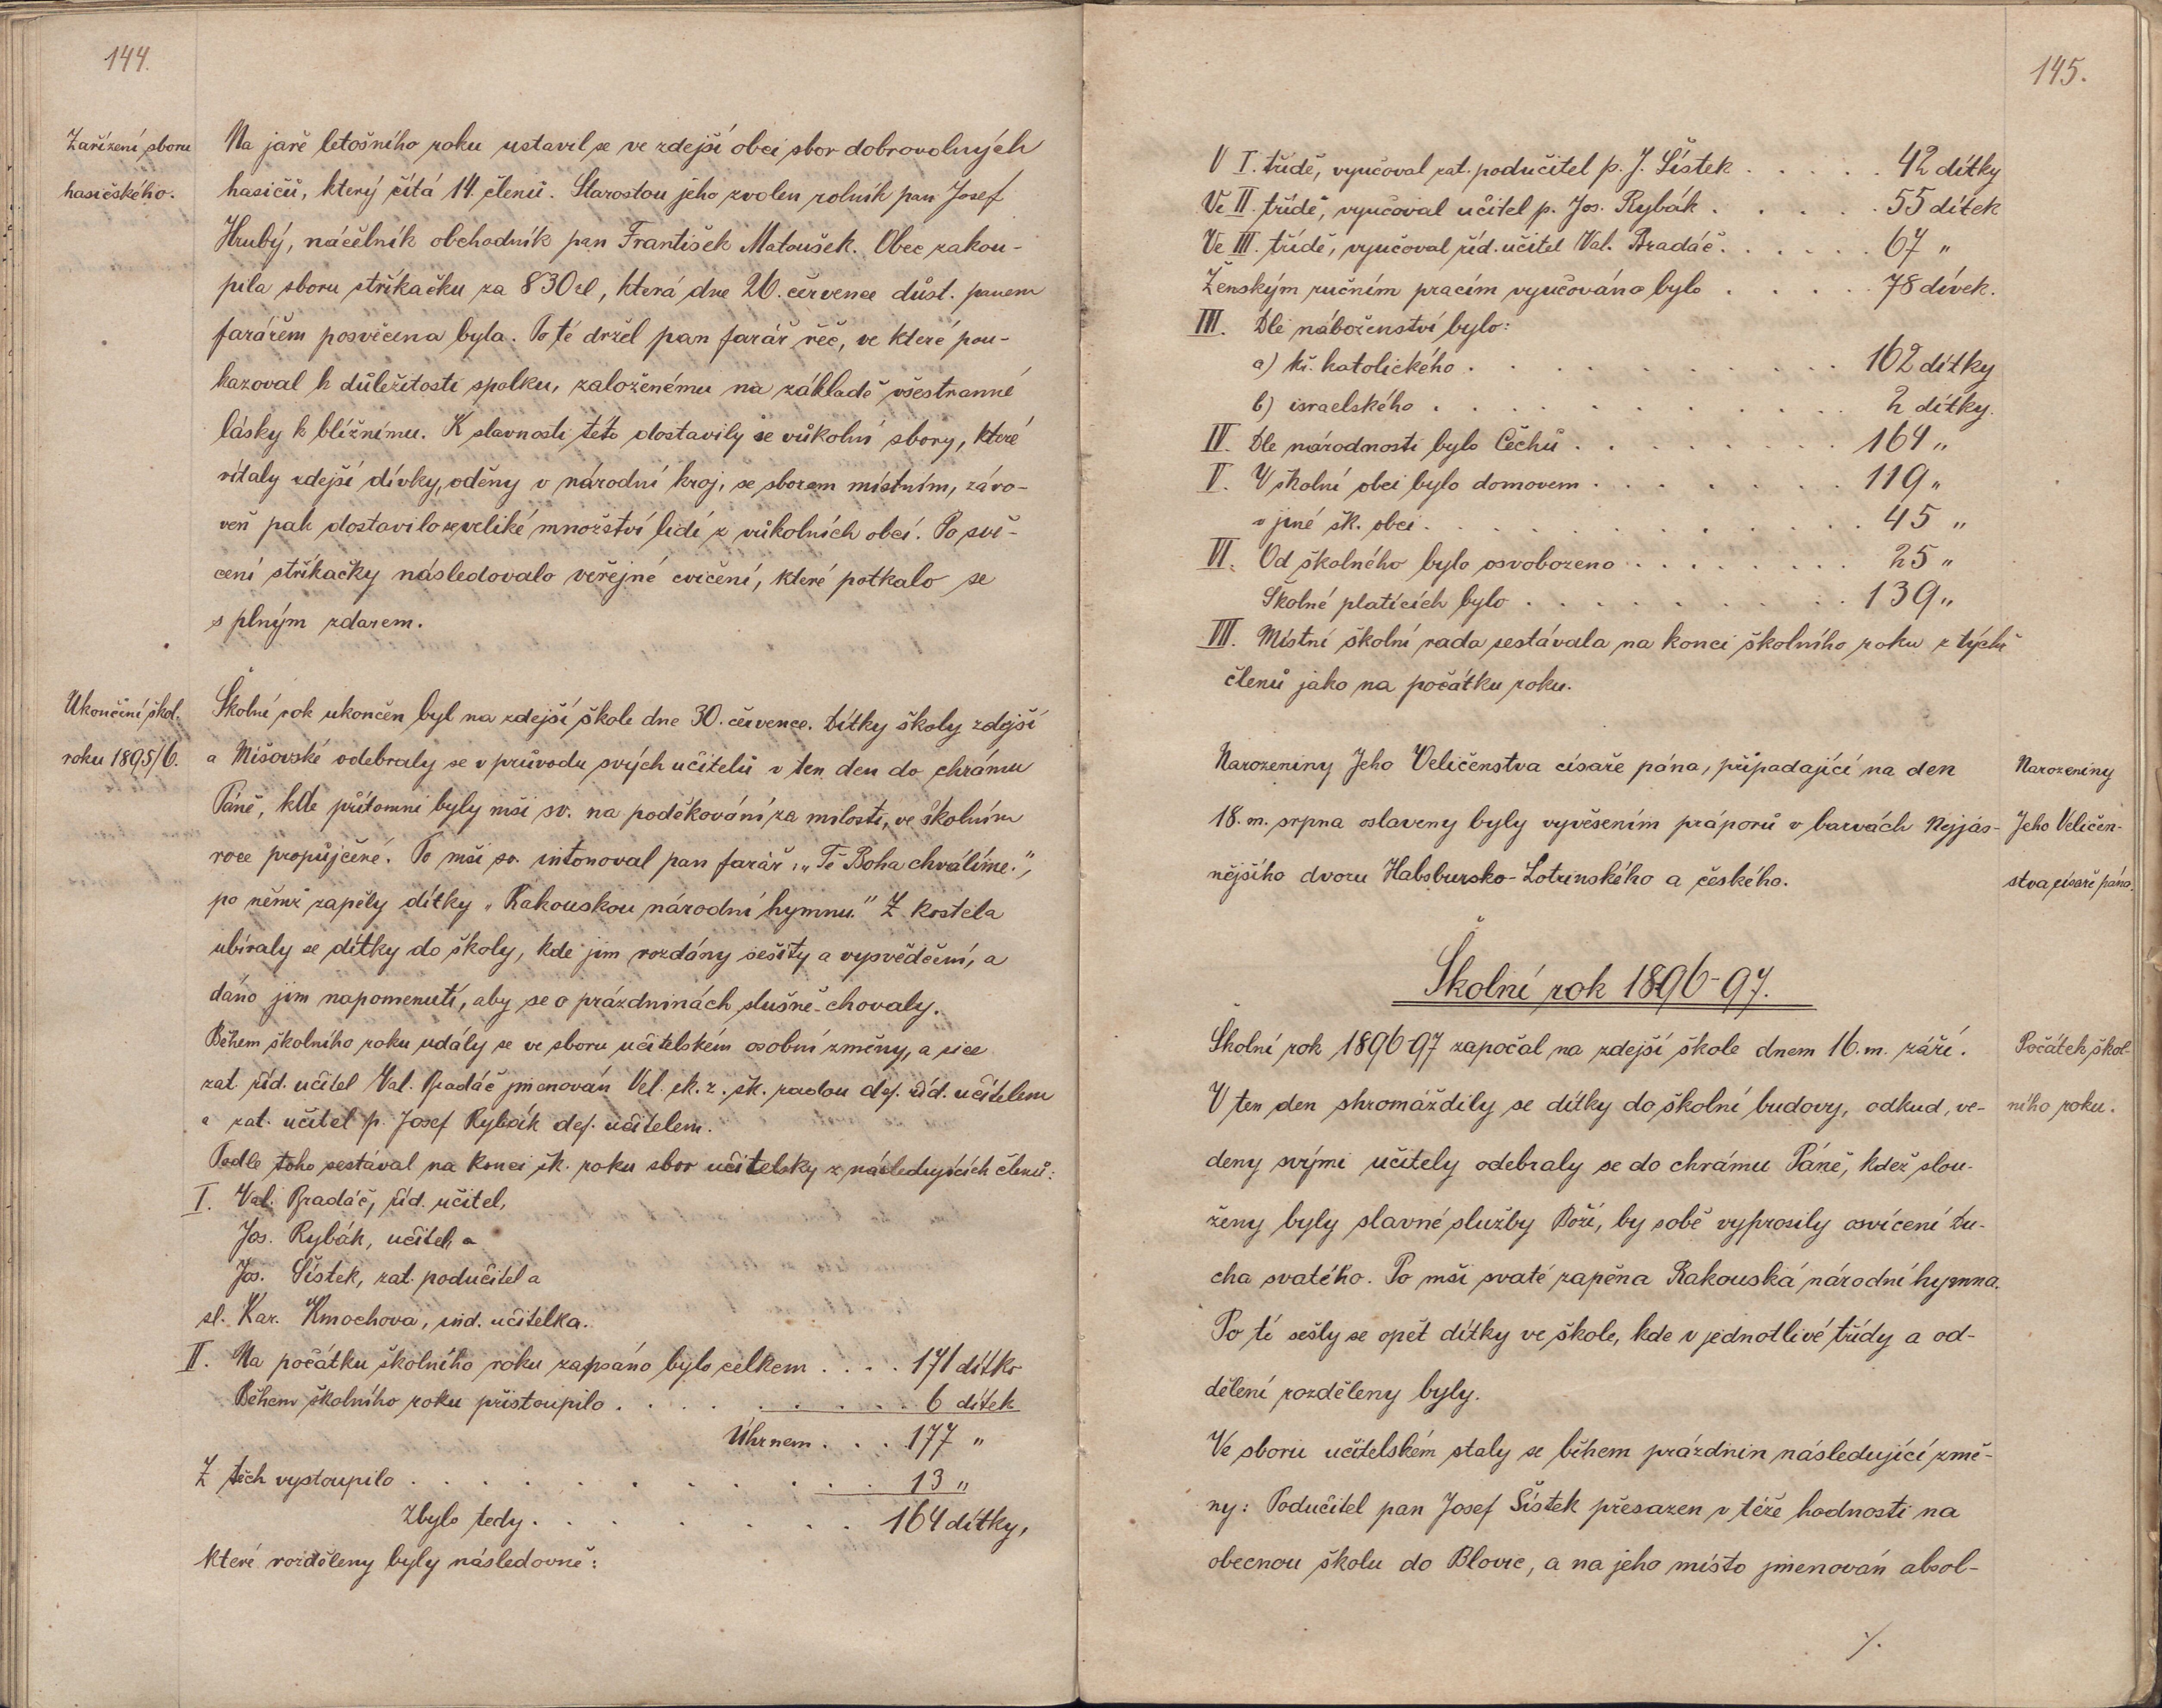 144.
Zařízení sboru
hasičského.
Na jaře letošního roku ustavil se ve zdejší obci sbor dobrovolných
hasičů, který čítá 14 členů. Starostou jeho zvolen rolník pan Josef
Hrubý, náčelník obchodník pan František Matoušek. Obec zakou-
pila sboru stříkačku za 830 zl, která dne 26. července důst. panem
farářem posvěcena byla. Po té držel pan farář řeč, ve které pou-
kazoval k důležitosti spolku, založenému na základě všestranné
lásky k bližnímu. K slavnosti této dostavily se vůkolní sbory, které
vítaly zdejší dívky, oděny v národní kroj, se sborem místním, záro-
veň pak dostavilo se veliké množství lidí z vůkolních obcí. Po svě-
cení stříkačky následovalo veřejné cvičení, které potkalo se
s plným zdarem.
Ukončení škol.
roku 1895/6.
Školní rok ukončen byl na zdejší škole dne 30. července. Dítky školy zdejší
a Mišovské odebraly se v průvodu svých učitelů v ten den do chrámu
Páně, kde přítomni byly mši sv. na poděkování za milosti, ve školním
roce propůjčené. Po mši sv. intonoval pan farář „Tě Boha chválíme.",
po němž zapěly dítky „Rakouskou národní hymnu." Z kostela
ubíraly se dítky do školy, kde jim rozdány sešity a vysvědčení, a
dáno jim napomenutí, aby se o prázdninách slušně chovaly.
Během školního roku udály se ve sboru učitelském osobní změny, a sice
zat. říd. učitel Val. Bradáč jmenován Vel. ck. z. šk. radou def. říd. učitelem
a zat. učitel p. Josef Rybák def. učitelem.
Podle toho sestával na konci šk. roku sbor učitelský z následujících členů:
I. Val. Bradáč, říd. učitel,
Jos. Rybák, učitel, a
Jos. Šístek, zat. podučitel a
sl. Kar. Kmochova, ind. učitelka.
II. Na počátku školního roku zapsáno bylo celkem . . . . 171 dítko
Během školního roku přistoupilo . . . . . . . . . 6 dítek
Úhrnem . . . 177 "
Z těch vystoupilo . . . . . . . . . . . . 13 "
Zbylo tedy . . . . . . . . 164 dítky,
které rozděleny byly následovně:
145.
V I. třídě, vyučoval zat. podučitel p. J. Šístek . . . . . 42 dítky
Ve II. třídě, vyučoval učitel p. Jos. Rybák . . . . . 55 dítek
Ve III. třídě, vyučoval říd. učitel Val. Bradáč . . . . . . 67 "
Ženským ručním pracím vyučováno bylo . . . . . 78 dívek.
III. Dle náboženství bylo:
a) kř. katolického . . . . . . . . . . 162 dítky
b) israelského . . . . . . . . . . . 2 dítky.
IV. Dle národnosti bylo Čechů . . . . . . . . 164 "
V. V školní obci bylo domovem . . . . . . . 119 "
v jiné šk. obci . . . . . . . . . . . . 45 "
VI. Od školného bylo osvobozeno . . . . . . . . 25 "
Školné platících bylo . . . . . . . . . . 139 "
VII. Místní školní rada sestávala na konci školního roku z týchž
členů jako na počátku roku.
Narozeniny Jeho Veličenstva císaře pána, připadající na den
18. m. srpna oslaveny byly vyvěšením práporů v barvách Nejjas-
nějšího dvoru Habsbursko-Lotrinského a českého.
Narozeniny
Jeho Veličen-
stva císaře pána.
Školní rok 1896-97.
Školní rok 1896-97 započal na zdejší škole dnem 16. m. září.
V ten den shromáždily se dítky do školní budovy, odkud, ve-
deny svými učitely odebraly se do chrámu Páně, kdež slou-
ženy byly slavné služby Boží, by sobě vyprosily osvícení Du-
cha svatého. Po mši svaté zapěna Rakouská národní hymna.
Po té sešly se opět dítky ve škole, kde v jednotlivé třídy a od-
dělení rozděleny byly.
Ve sboru učitelském staly se během prázdnin následující změ-
ny: Podučitel pan Josef Šístek přesazen v téže hodnosti na
obecnou školu do Blovic, a na jeho místo jmenován absol-
Počátek škol-
ního roku.
./.